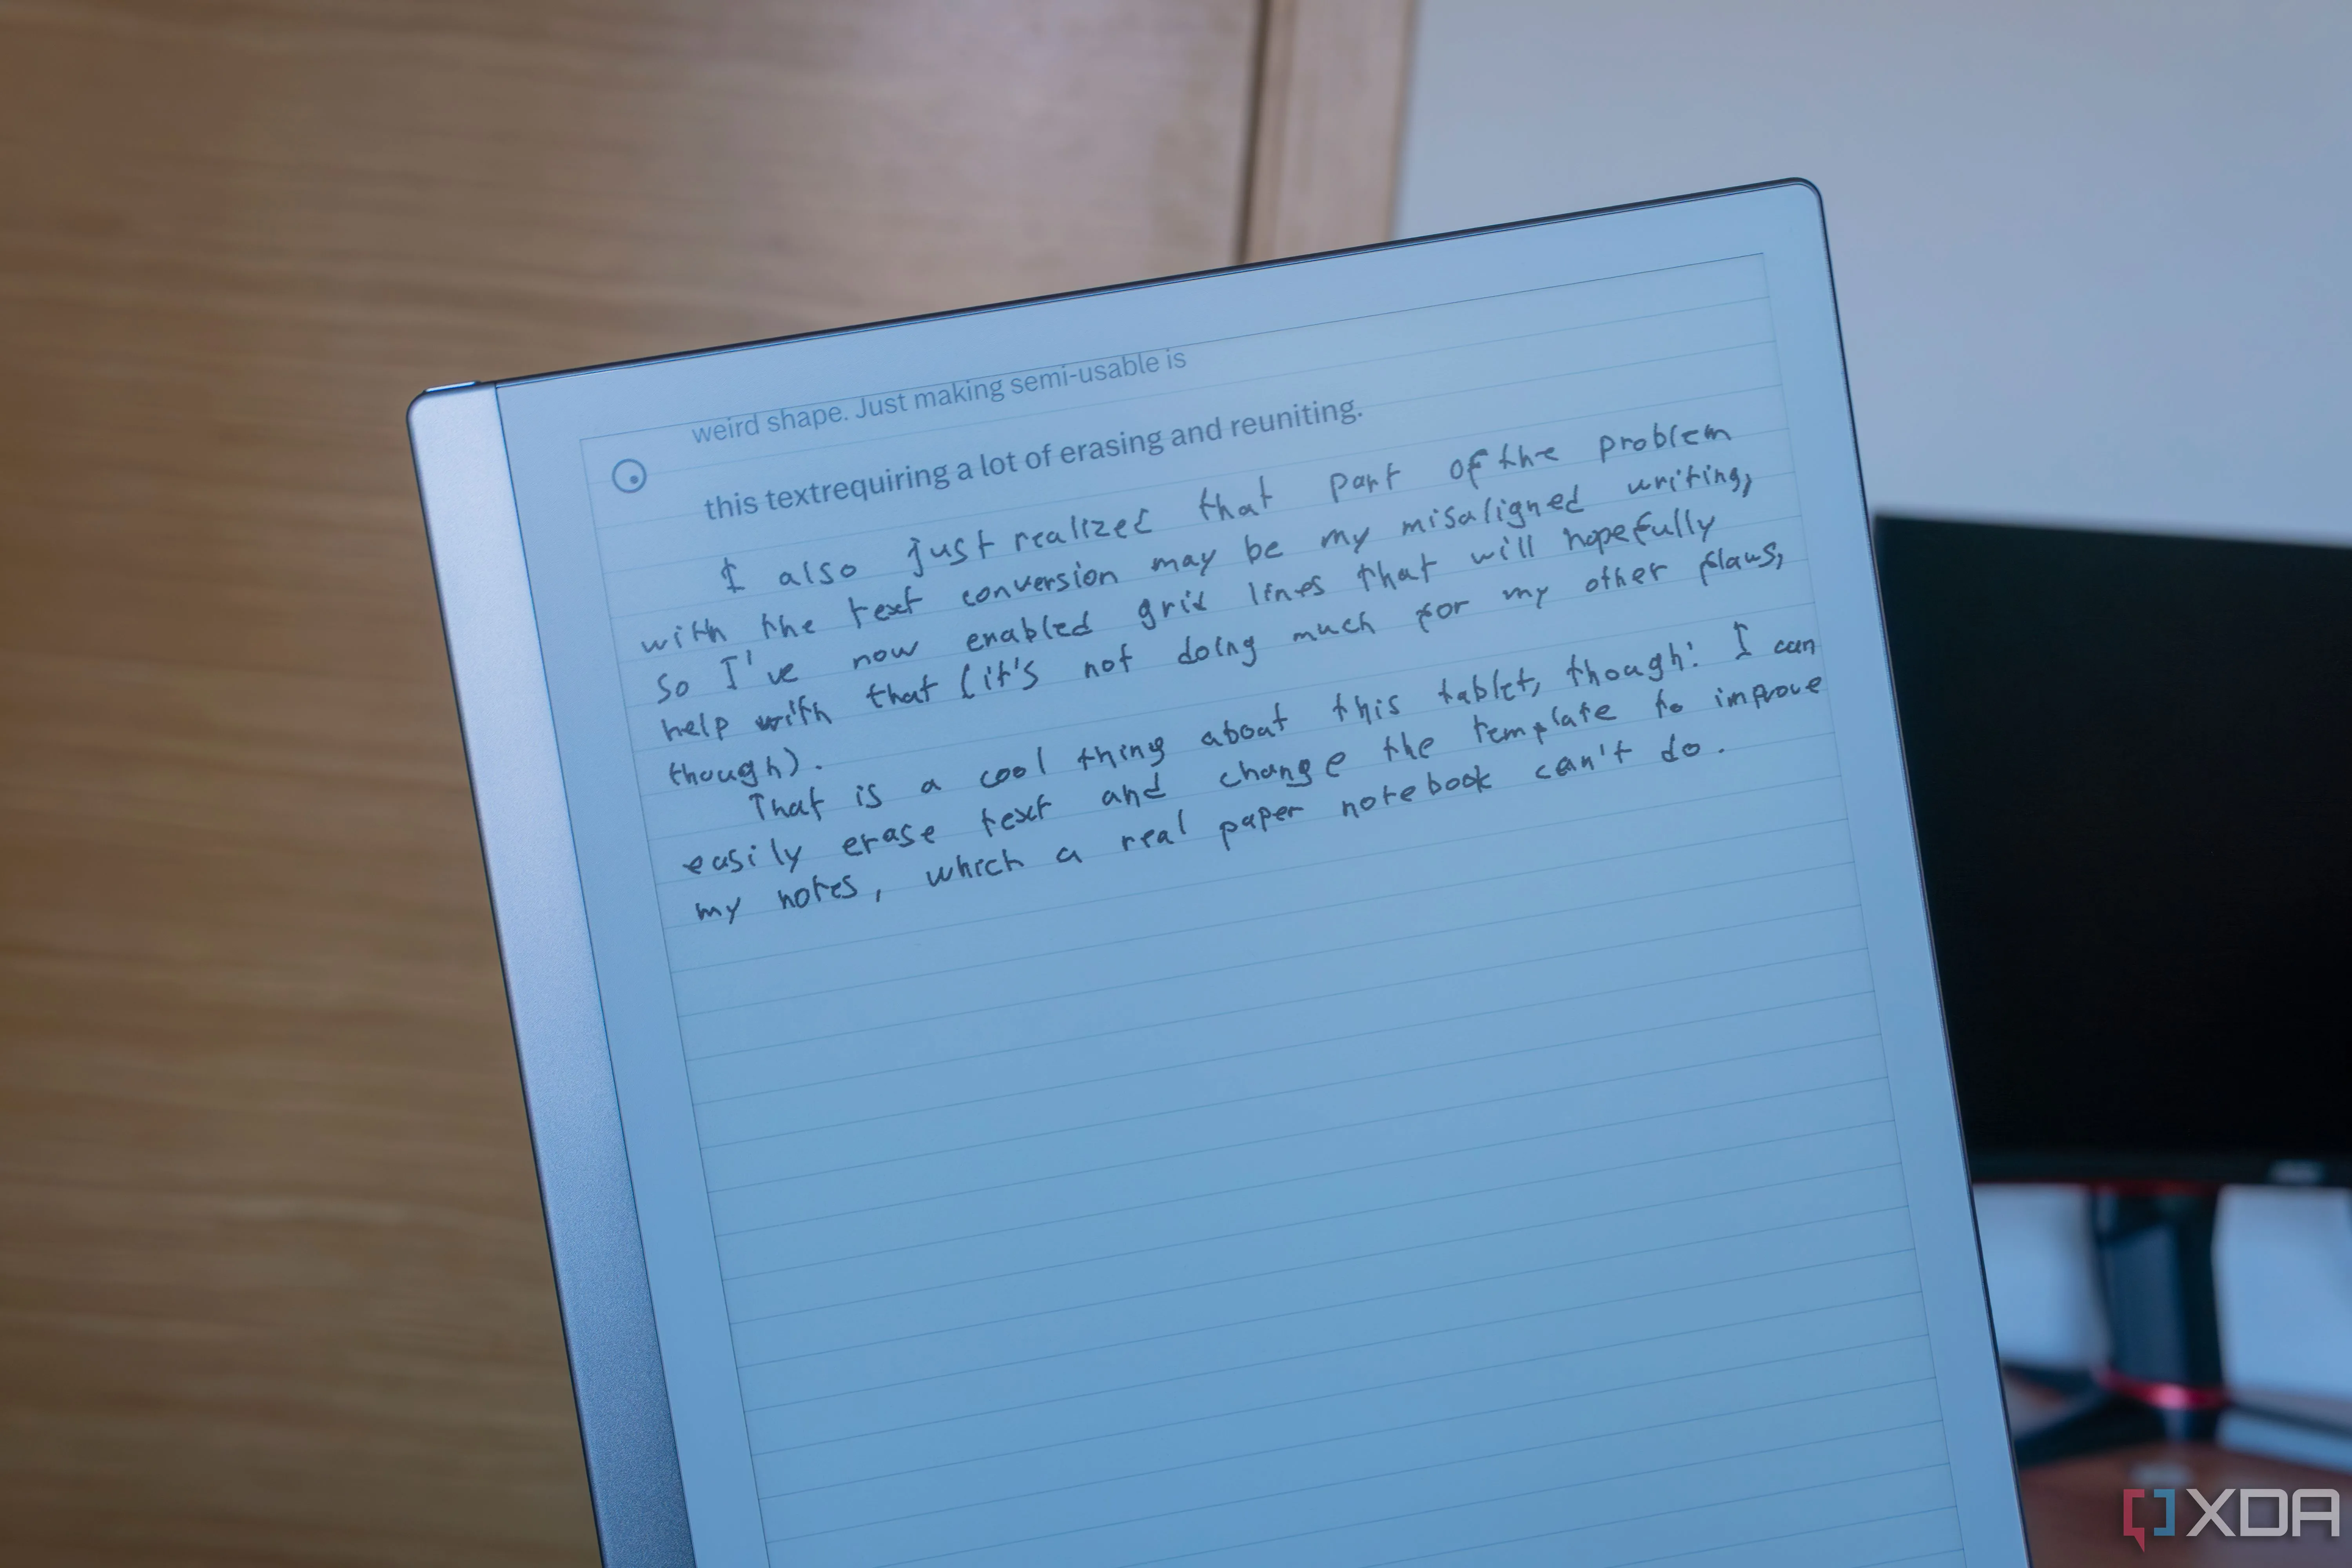 weird shape. Just making semi-usable is
this textrequiring a lot of erasing and reuniting.
I also just realized that part of the problem
with the text conversion may be my misaligned writing,
so I've now enabled grid lines that will hopefully
help with that (it's not doing much for my other flaws,
though).
That is a cool thing about this tablet, though: I can
easily erase text and change the template to improve
my notes, which a real paper notebook can't do.
XDA